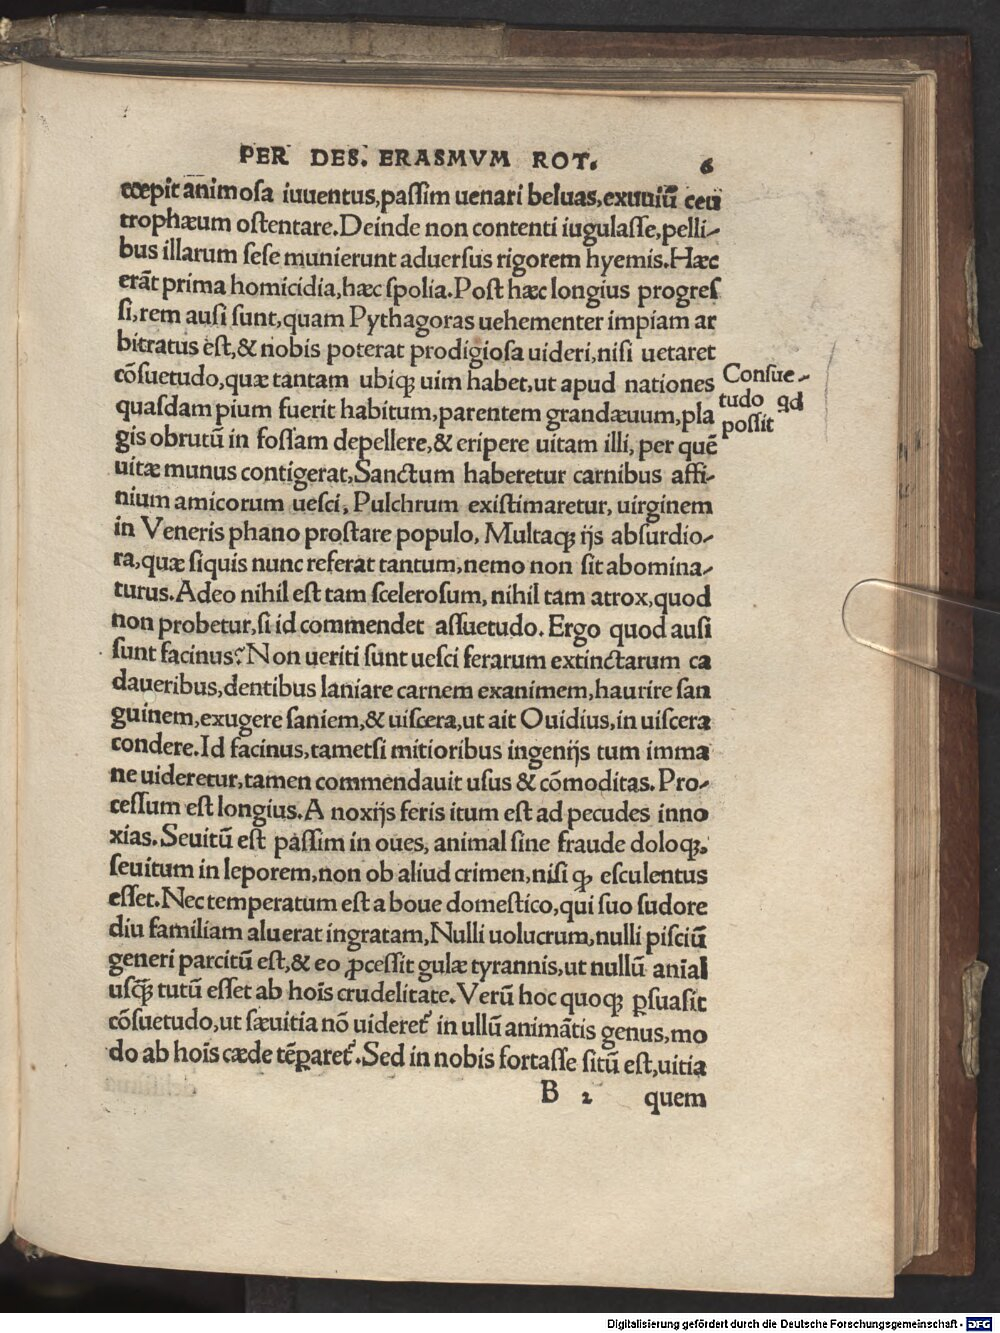 PER DES. ERASMVM ROT. 6
cœpit animosa iuuentus,paſſim uenari beluas,exuuiũ ceu
trophæum oſtentare.Deinde non contenti iugulaſſe,pelli-
bus illarum ſeſe munierunt aduerſus rigorem hyemis.Hæc
erãt prima homicidia,hæc ſpolia.Poſt hæc longius progreſ
ſi,rem auſi ſunt,quam Pythagoras uehementer impiam ar
bitratus eſt,& nobis poterat prodigioſa uideri,niſi uetaret
cõſuetudo,quæ tantam ubiqꝫ uim habet,ut apud nationes
quaſdam pium fuerit habitum,parentem grandæuum,pla
gis obrutũ in foſſam depellere,& eripere uitam illi, per quẽ
uitæ munus contigerat,Sanctum haberetur carnibus affi-
nium amicorum ueſci, Pulchrum exiſtimaretur, uirginem
in Veneris phano proſtare populo, Multaqꝫ ijs abſurdio-
ra,quæ ſiquis nunc referat tantum,nemo non ſit abomina-
turus.Adeo nihil eſt tam ſceleroſum, nihil tam atrox,quod
non probetur,ſi id commendet aſſuetudo. Ergo quod auſi
ſunt facinus? Non ueriti ſunt ueſci ferarum extinctarum ca
daueribus,dentibus laniare carnem exanimem,haurire ſan
guinem,exugere ſaniem,& uiſcera,ut ait Ouidius,in uiſcera
condere.Id facinus,tametſi mitioribus ingenijs tum imma
ne uideretur,tamen commendauit uſus & cõmoditas. Pro-
ceſſum eſt longius. A noxijs feris itum eſt ad pecudes inno
xias. Seuitũ eſt paſſim in oues, animal ſine fraude doloqꝫ,
ſeuitum in leporem,non ob aliud crimen,niſi ꝙ eſculentus
eſſet.Nec temperatum eſt a boue domeſtico,qui ſuo ſudore
diu familiam aluerat ingratam,Nulli uolucrum,nulli piſciũ
generi parcitũ eſt,& eo ꝓceſſit gulæ tyrannis,ut nullũ anial
uſꝗ̃ tutũ eſſet ab hoĩs crudelitate.Verũ hoc quoqꝫ ꝑſuaſit
cõſuetudo,ut ſæuitia nõ uideret᷑ in ullũ animãtis genus,mo
do ab hoĩs cæde tẽꝑaret᷑.Sed in nobis fortaſſe ſitũ eſt,uitia
B 2 quem
Conſue-
tudo qd
poſſit
Digitalisierung gefördert durch die Deutsche Forschungsgemeinschaft - DFG